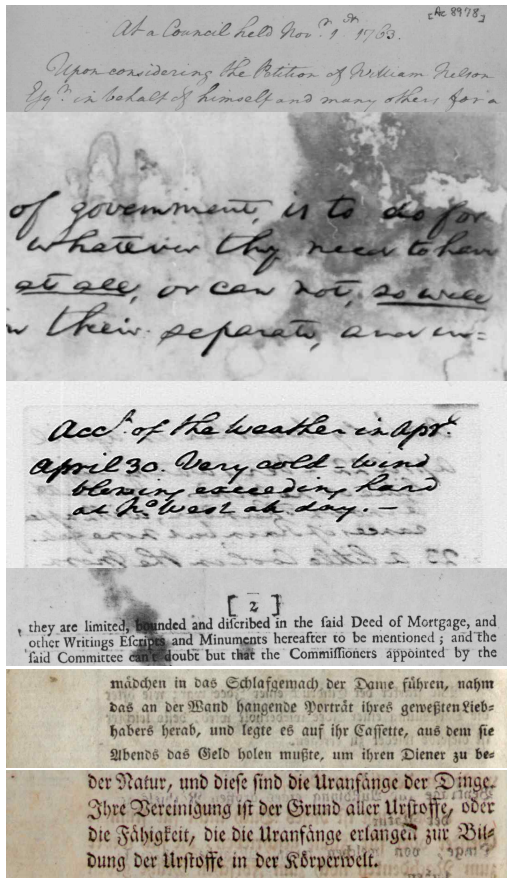 [Ac 8978]
At a Council held Novr. 1st. 1763.
Upon considering the Petition of William Nelson
Esqr. in behalf of himself and many others for a
of government, is to do for
whatever they need to have
at all, or can not, so well
their separate, and in=
Acct. of the Weather in Apr.
April 30. Very cold - Wind
blowing exceeding hard
at No. West all day. —
[ 2 ]
they are limited, bounded and diſcribed in the ſaid Deed of Mortgage, and
other Writings Eſcripts and Minuments hereafter to be mentioned ; and the
ſaid Committee can't doubt but that the Commiſſioners appointed by the
mädchen in das Schlafgemach der Dame führen, nahm
das an der Wand hangende Porträt ihres geweßten Lieb-
habers herab, und legte es auf ihr Caſſette, aus dem ſie
Abends das Geld holen mußte, um ihren Diener zu be-
der Natur, und dieſe ſind die Uranfänge der Dinge.
Ihre Vereinigung iſt der Grund aller Urſtoffe, oder
die Fähigkeit, die die Uranfänge erlangen zur Bil-
dung der Urſtoffe in der Körperwelt.